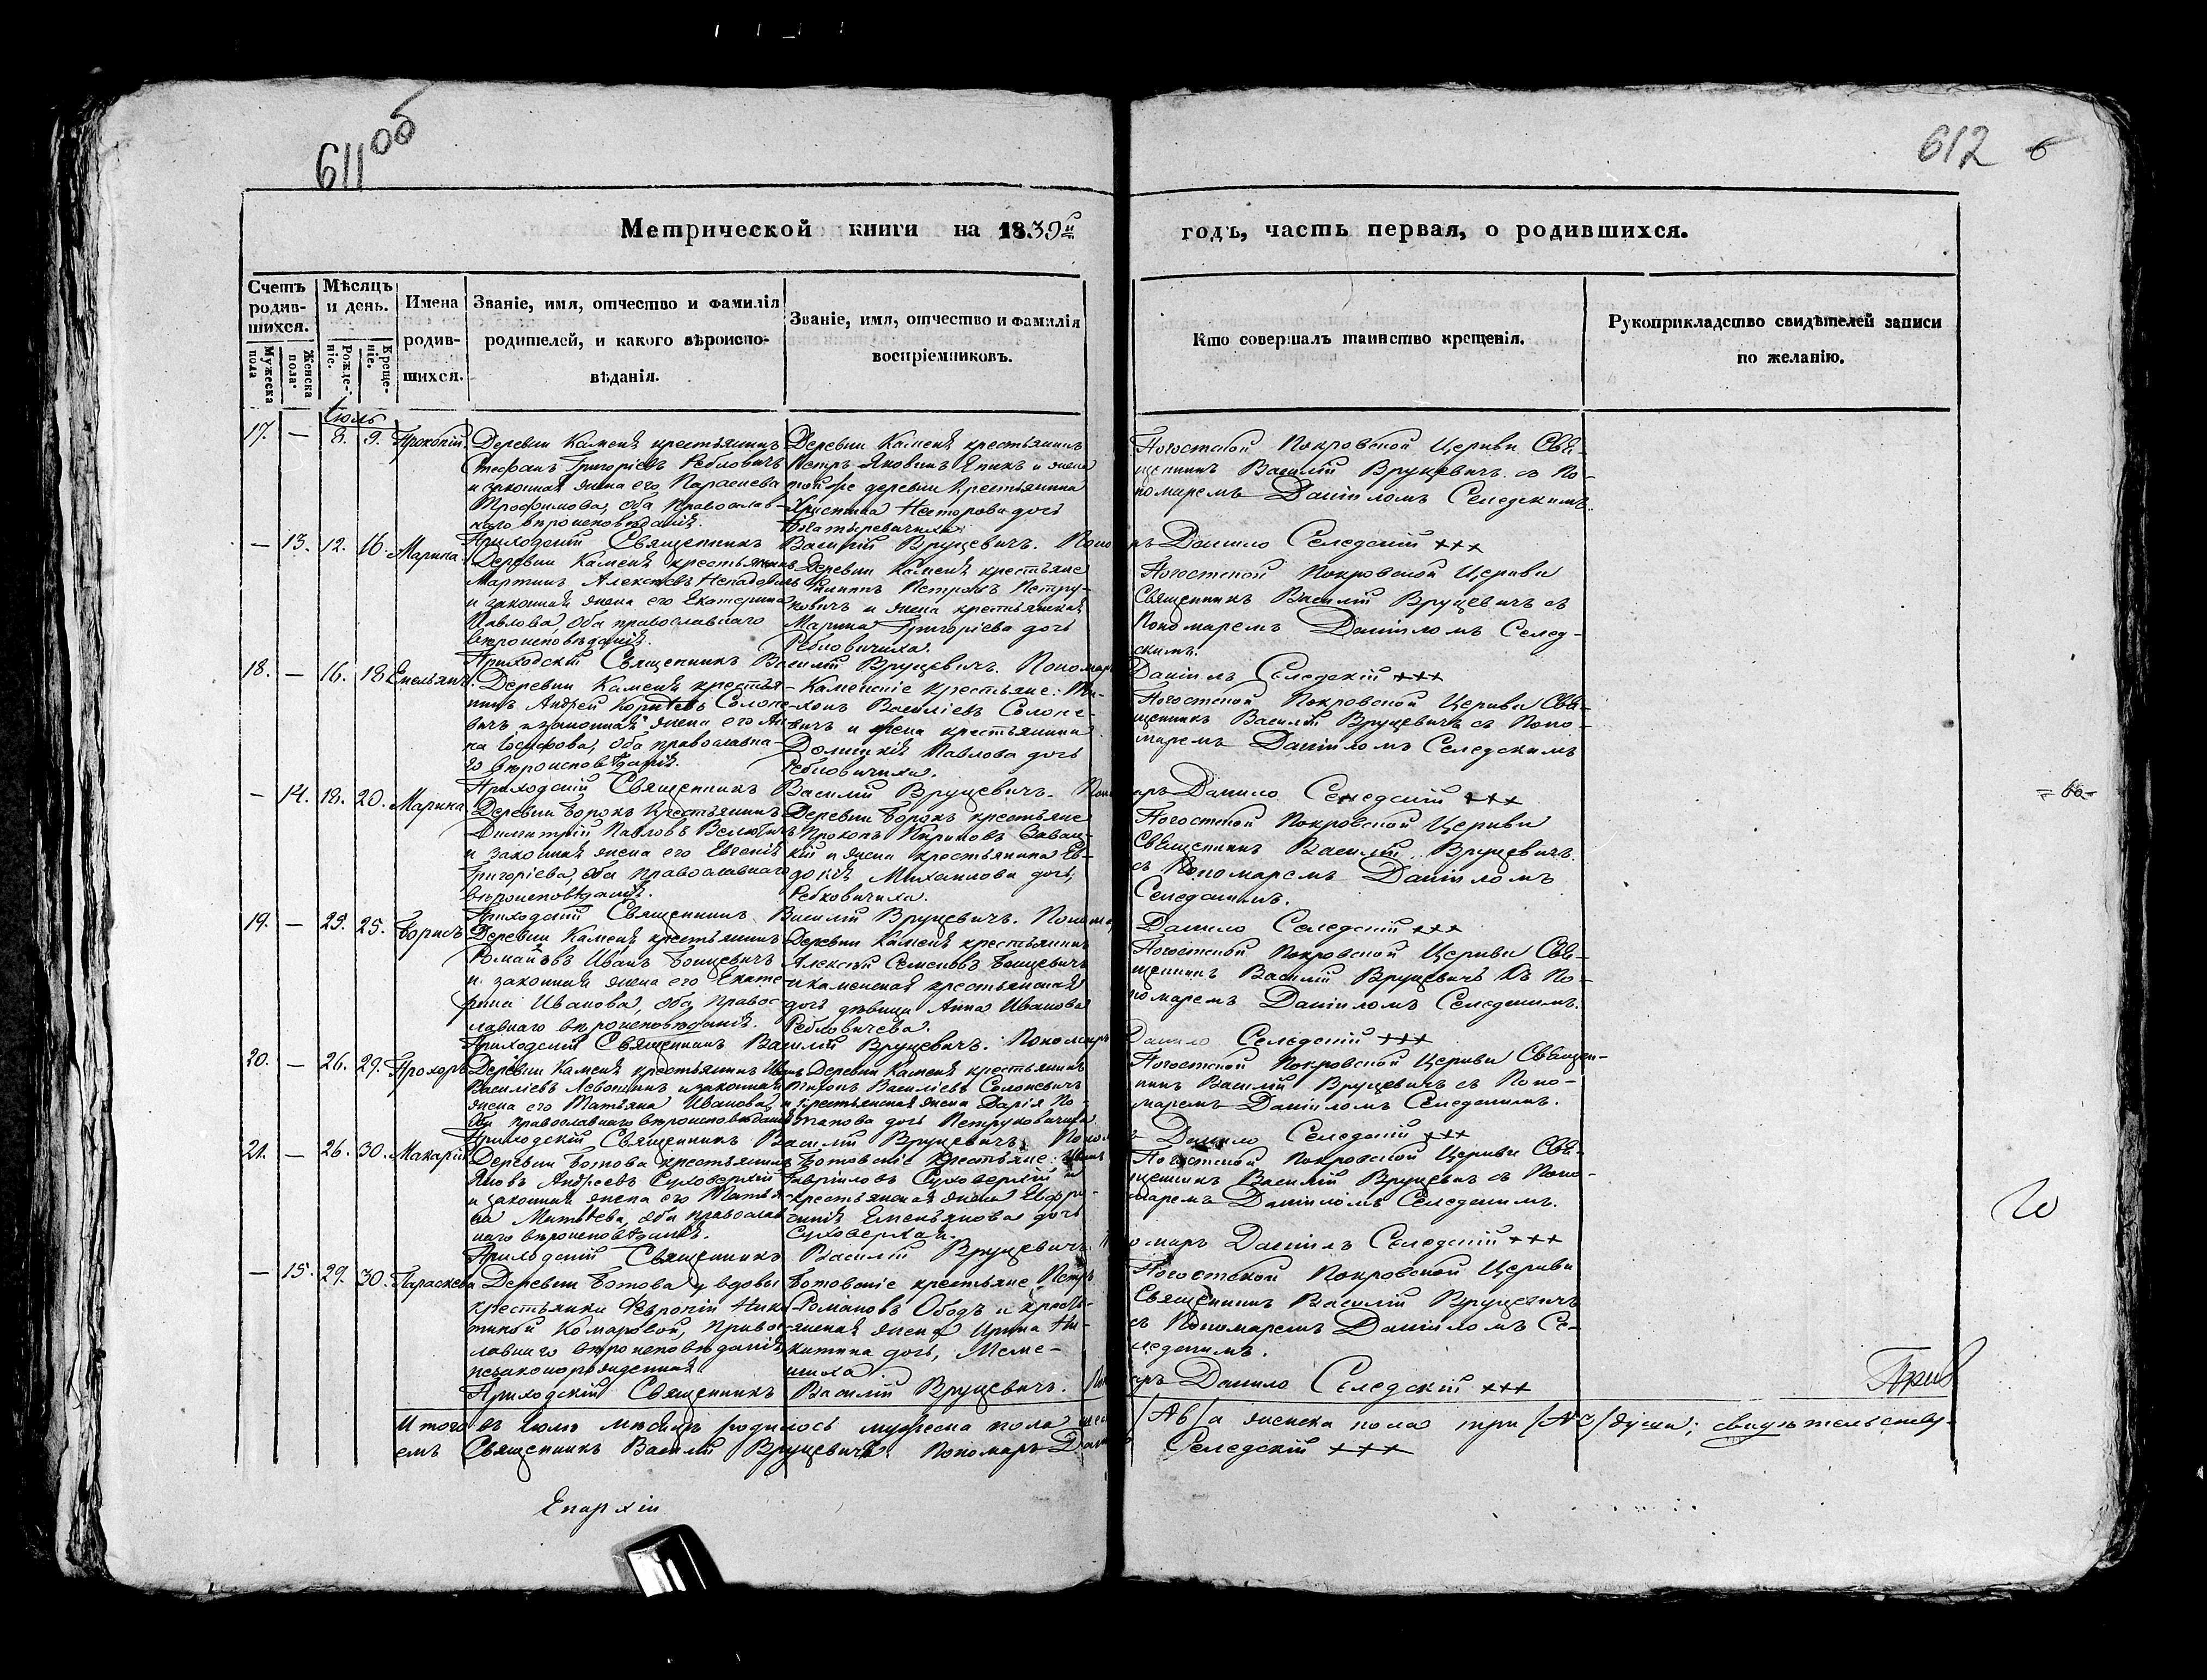 611 об
612 6
Метрической книги на 1839й
годъ, часть первая, о родившихся.
Счетъ родив-шихся.
Мужеска пола
Женска пола.
Мѣсяцъ и день.
Рожде-ніе.
Креще-ніе.
Имена родив-шихся.
Званіе, имя, отчество и фамилія родителей, и какого вѣроиспо-вѣданія.
Званіе, имя, отчество и фамилія воспріемниковъ.
Кто совершалъ таинство крещенія.
Рукоприкладство свидѣтелей записи по желанію.
Іюль
17. — 8. 9. Прокопій.
Деревни Каменя крестьянинъ
Стефанъ Григоріевъ Ребловичъ
и законная жена его Параскева
Трофимова, оба православ-
наго вѣроисповѣданія.
Деревни Каменя крестьянинъ
Петръ Яковинъ и жена
той же деревни крестьянина
Христина Несторова дочь
Погостской Покровской Церкви Свя-
щенникъ Василій Вруцевичъ съ По-
номаремъ Даніиломъ Селедскимъ.
Приходскій Священникъ Василій Вруцевичъ. Поно ръ Данило Селедскій +++
— 13. 12. 16. Марина.
Деревни Каменя крестьянинъ
Мартинъ Алексѣевъ
и законная жена его Екатерина
Павлова, оба православнаго
вѣроисповѣданія.
Деревни Каменя крестьяне
Филиппъ Петровъ Петру-
ковичъ и жена крестьянская
Марина Григоріева дочь
Ребловичиха.
Погостской Покровской Церкви
Священникъ Василій Вруцевичъ съ
Пономаремъ Даніиломъ Селед-
скимъ.
Приходскій Священникъ Василій Вруцевичъ. Пономар Даніилъ Селедскій +++
18. — 16. 18. Емельянъ.
Деревни Каменя крестья-
нинъ Андрей Солоне-
вичъ и законная жена его Ан-
на Іосифова, оба православна-
го вѣроисповѣданія.
Каменскіе крестьяне: Ти-
хонъ Василіевъ Солоне-
вичъ и жена крестьянина
Домникія Павлова дочь
Ребловичиха.
Погостской Покровской Церкви Свя-
щенникъ Василій Вруцевичъ съ Поно-
маремъ Даніиломъ Селедскимъ
Приходскій Священникъ Василій Вруцевичъ. Поно аръ Данило Селедскій +++
— 14. 18. 20. Марина.
Деревни Борокъ крестьянинъ
Димитрій Павловъ
и законная жена его Евгенія
Григоріева, оба православнаго
вѣроисповѣданія.
Деревни Борокъ крестьяне
Прокопъ Кириковъ Завац-
кій и жена крестьянина Ев-
докія Михаилова дочь,
Ребковичиха.
Погостской Покровской Церкви
Священникъ Василій Вруцевичъ
съ Пономаремъ Даніиломъ
Селедскимъ.
= 66 =
Приходскій Священникъ Василій Вруцевичъ. Пономар Данило Селедскій +++
19. — 23. 25. Борисъ
Деревни Каменя крестьянинъ
Романовъ Иванъ Боицевичъ
и законная жена его Екате-
рина Иванова, оба правос-
лавнаго вѣроисповѣданія.
Деревни Каменя крестьянинъ
Алексѣй Семеновъ Боицевичъ
и каменская крестьянская
дочь дѣвица Анна Иванова
Ребловичева.
Погостской Покровской Церкви Свя-
щенникъ Василій Вруцевичъ съ По-
номаремъ Даніиломъ Селедскимъ.
Приходскій Священникъ Василій Вруцевичъ. Пономаръ Данило Селедскій +++
20. — 26. 29. Прохоръ
Деревни Каменя крестьянинъ Иванъ
Василіевъ Левошинъ и законная
жена его Татьяна Иванова,
оба православнаго вѣроисповѣданія
Деревни Каменя крестьянинъ
Тихонъ Василіевъ Солоневичъ
и крестьянская жена Дарія По-
тапова дочь Петруковичиха.
Погостской Покровской Церкви Священ-
никъ Василій Вруцевичъ съ Поно-
маремъ Даніиломъ Селедскимъ.
Приходскій Священникъ Василій Вруцевичъ. Поном ъ Данило Селедскій +++
21. — 26. 30. Макарій
Деревни Ботова крестьянинъ
Яковъ Андреевъ Суховерхій
и законная жена его Татья-
на Матвѣева, оба православ-
наго вѣроисповѣданія.
Ботовскіе крестьяне: Иванъ
Гавріиловъ Суховерхій и
крестьянская жена Евфро-
синія Емельянова дочь
Суховерхая.
Погостской Покровской Церкви Свя-
щенникъ Василій Вруцевичъ съ Поно-
маремъ Даніиломъ Селедскимъ.
Приходскій Священникъ Василій Вруцевичъ. П омаръ Даніилъ Селедскій +++
— 15. 29. 30. Параскева
Деревни Ботова у вдовы
крестьянки Февроніи Ники-
тиной Комаровой, правос-
лавнаго вѣроисповѣданія
незаконорожденная
Ботовскіе крестьяне Петръ
Романовъ Ободъ и кресть-
янская жена Ирина Ни-
китина дочь,
Погостской Покровской Церкви
Священникъ Василій Вруцевичъ
съ Пономаремъ Даніиломъ Се-
ледскимъ.
Приходскій Священникъ Василій Вруцевичъ. По аръ Данило Селедскій +++
Итого въ Іюлѣ мѣсяцѣ родилось мужеска пола женска пола три душъ; свидѣтельству-
емъ Священникъ Василій Вруцевичъ. Пономаръ Дан Селедскій +++
Епархіи